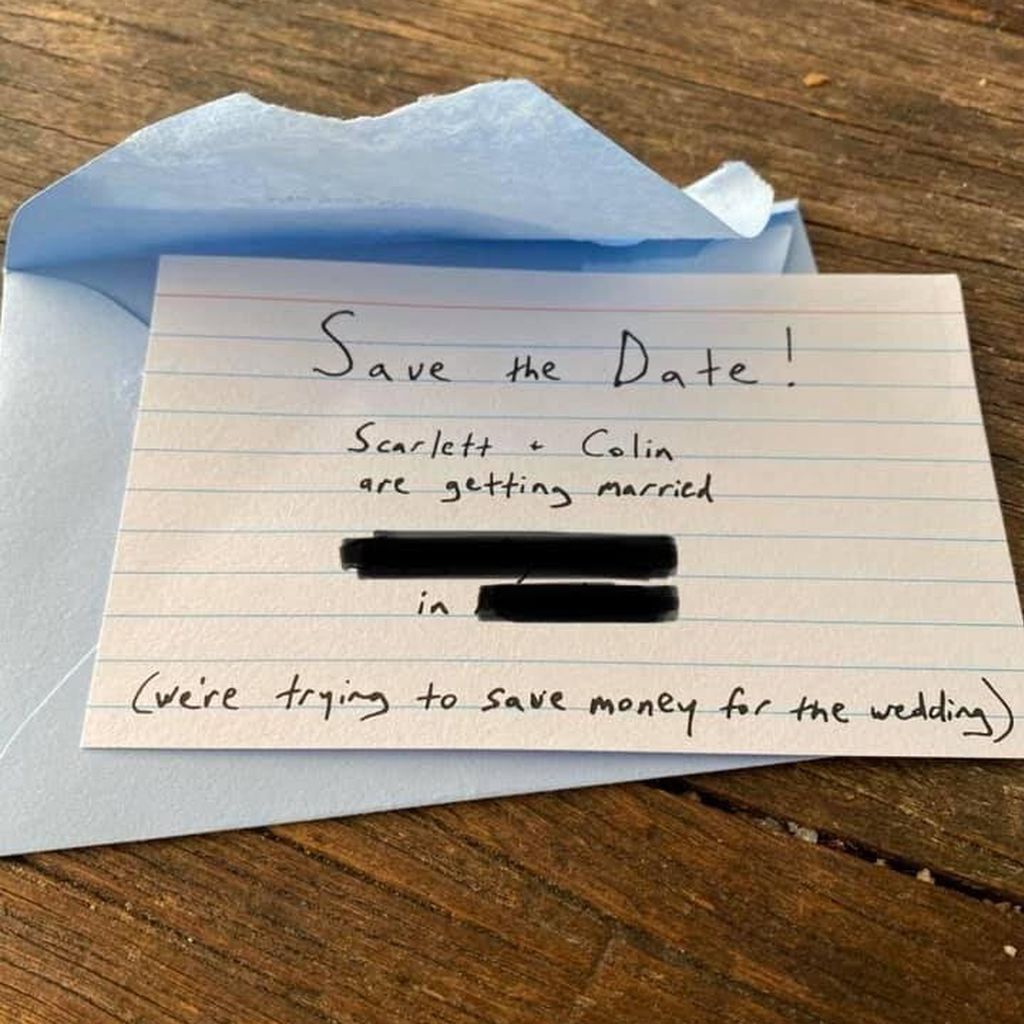 Save the Date!
Scarlett + Colin
are getting married
in
(we're trying to save money for the wedding)